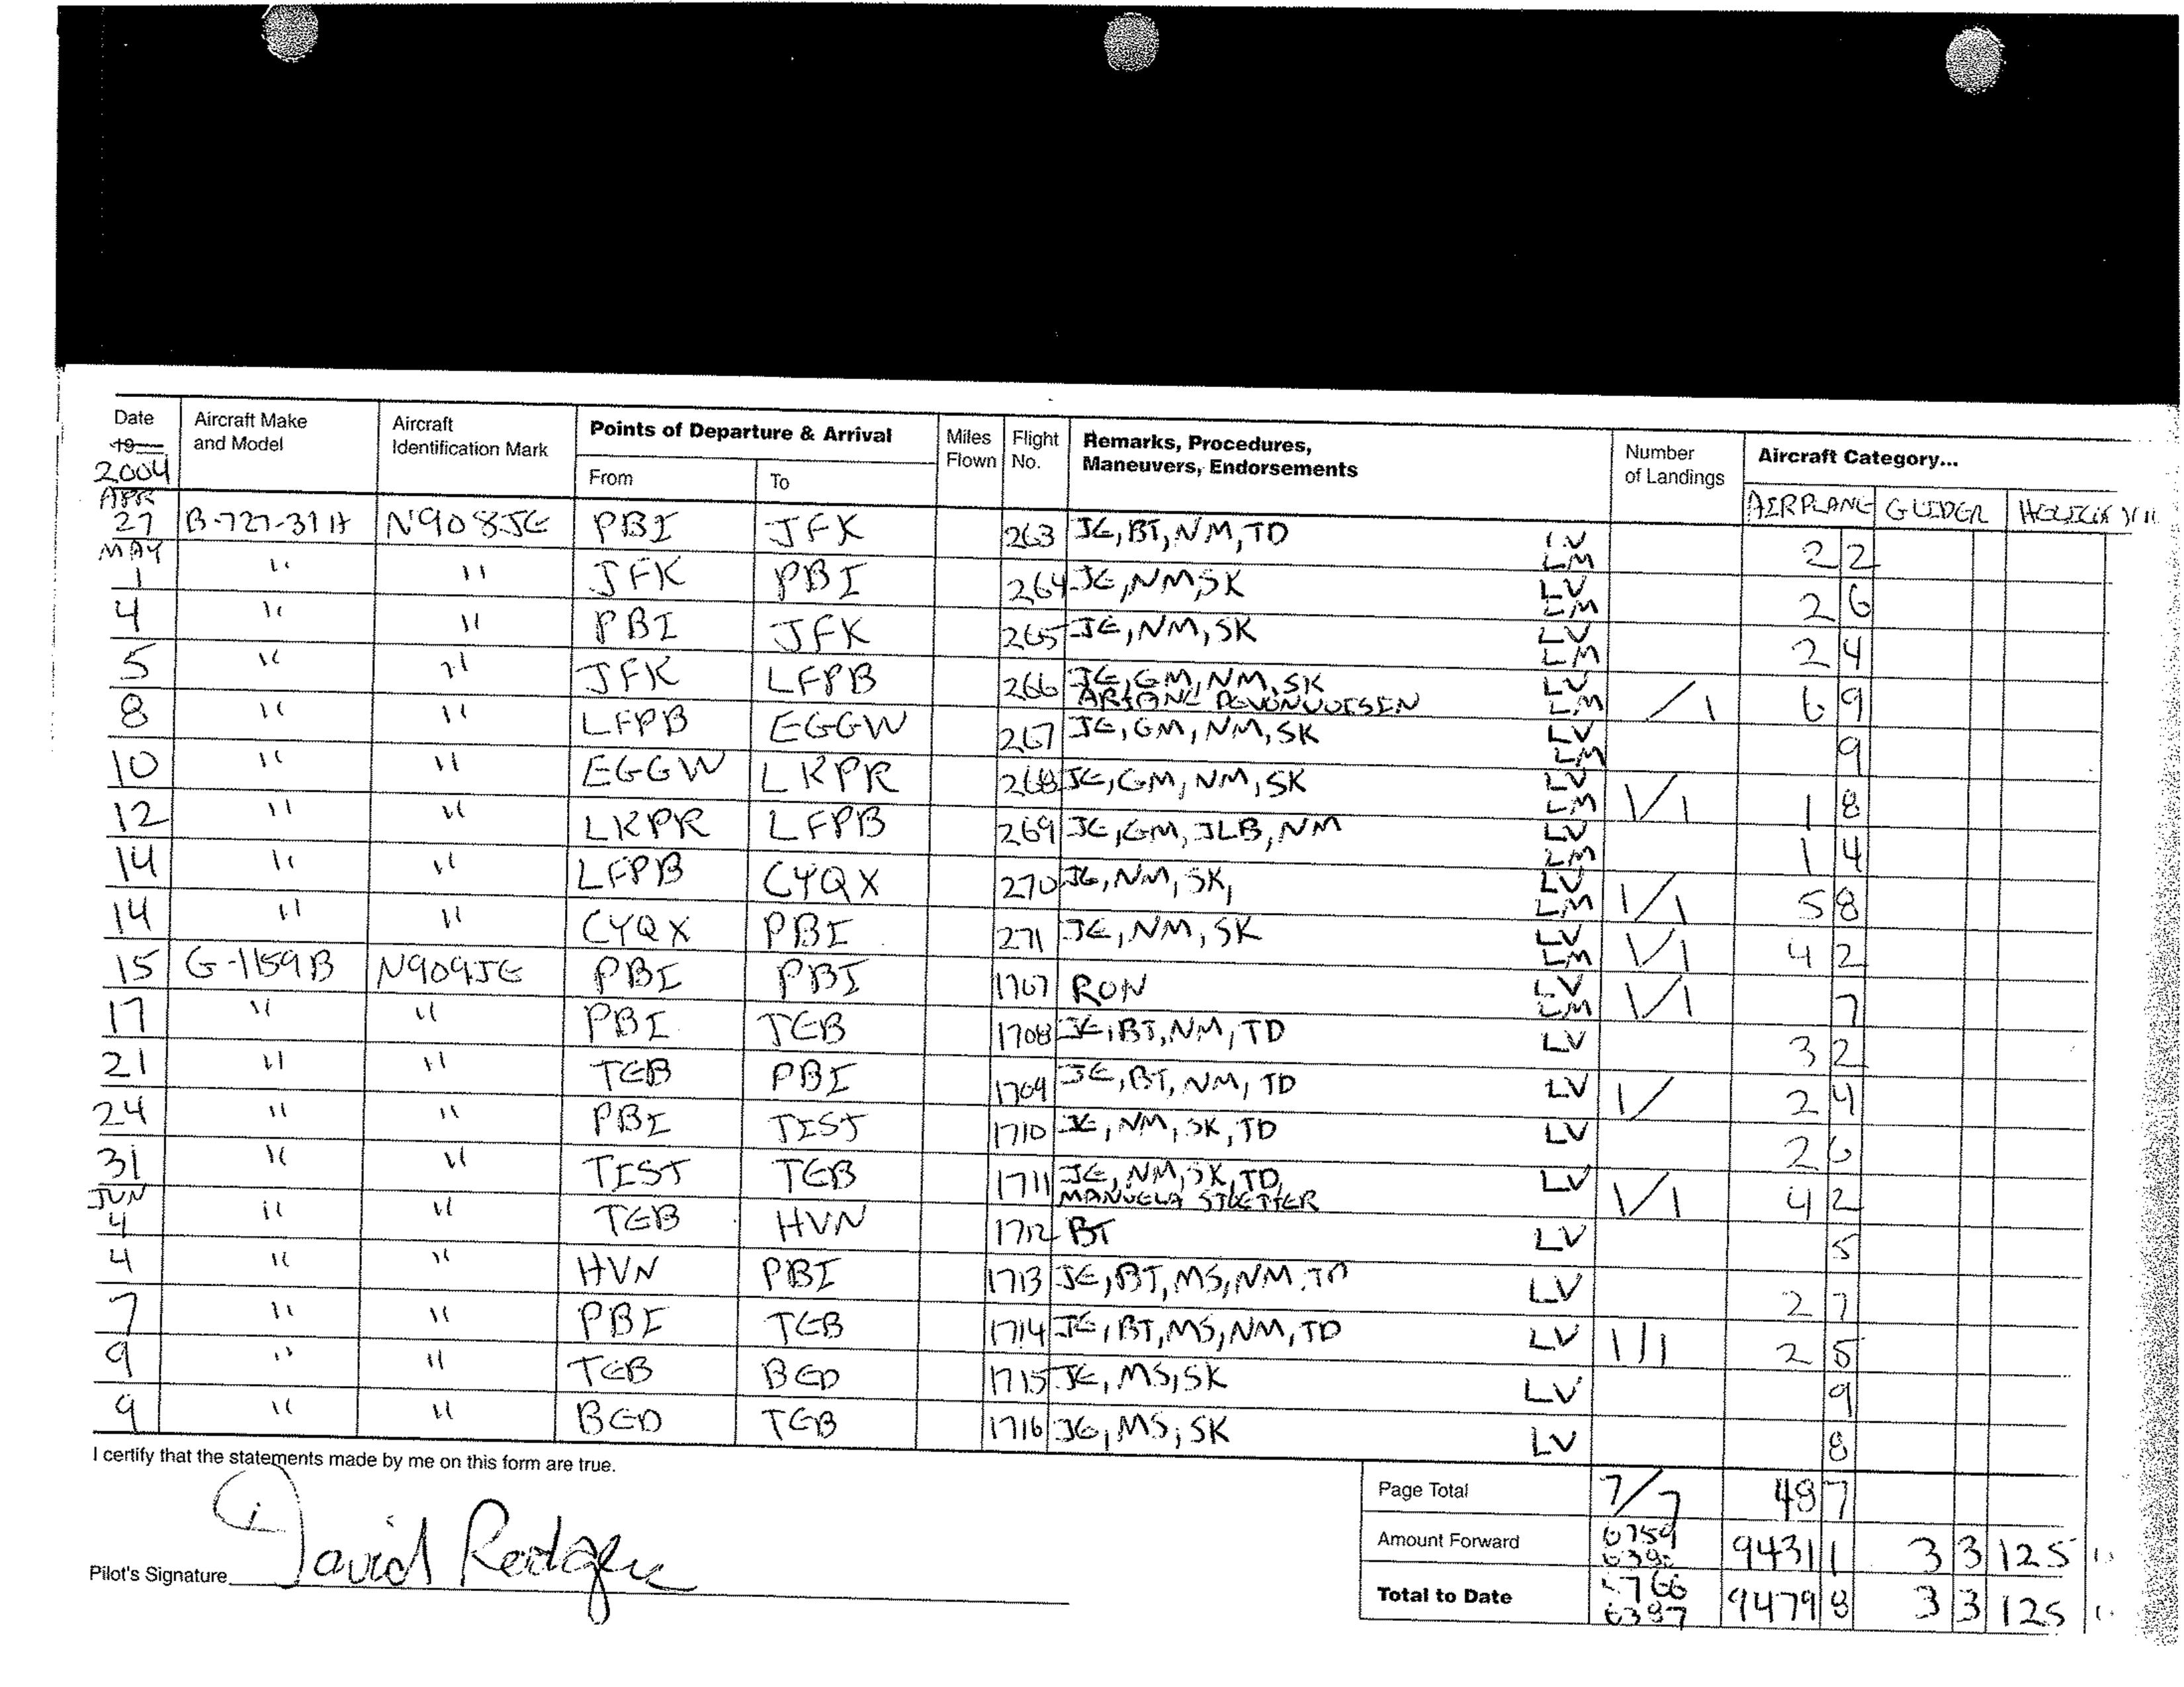 Date Aircraft Make and Model Aircraft Identification Mark Points of Departure & Arrival Miles Flown Flight No. Remarks, Procedures, Maneuvers, Endorsements Number of Landings Aircraft Category...
19
2004 From To AIRPLANE GLIDER
APR
27 B-727-31H N908JE PBI JFK 263 JE, BT, NM, TD LV LM 2 2
MAY
1 " " JFK PBI 264 JE, NM, SK LV LM 2 6
4 " " PBI JFK 265 JE, NM, SK LV LM 2 4
5 " " JFK LFPB 266 JE, GM, NM, SK LV LM /1 6 9
8 " " LFPB EGGW 267 JE, GM, NM, SK LV LM 9
10 " " EGGW LKPR 268 JE, GM, NM, SK LV LM 1/1 1 8
12 " " LKPR LFPB 269 JE, GM, JLB, NM LV LM 1 4
14 " " LFPB CYQX 270 JE, NM, SK, LV LM 1/1 5 8
14 " " CYQX PBI 271 JE, NM, SK LV LM 1/1 4 2
15 G-1159B N909JE PBI PBI 1707 RON LV LM 1/1 7
17 " " PBI TEB 1708 JE, BT, NM, TD LV 3 2
21 " " TEB PBI 1709 JE, BT, NM, TD LV 1/ 2 4
24 " " PBI TIST 1710 JE, NM, SK, TD LV 2 6
31 " " TIST TEB 1711 JE, NM, SK, TD, LV 1/1 4 2
MANUELA
JUN
4 " " TEB HVN 1712 BT LV 5
4 " " HVN PBI 1713 JE, BT, MS, NM, TD LV 2 7
7 " " PBI TEB 1714 JE, BT, MS, NM, TD LV 1/1 2 5
9 " " TEB BED 1715 JE, MS, SK LV 9
9 " " BED TEB 1716 JE, MS, SK LV 8
I certify that the statements made by me on this form are true.
Page Total 7/7 48 7
Amount Forward 6759 9431 1 3 3 125
Pilot's Signature David
Total to Date 6387 9479 8 3 3 125